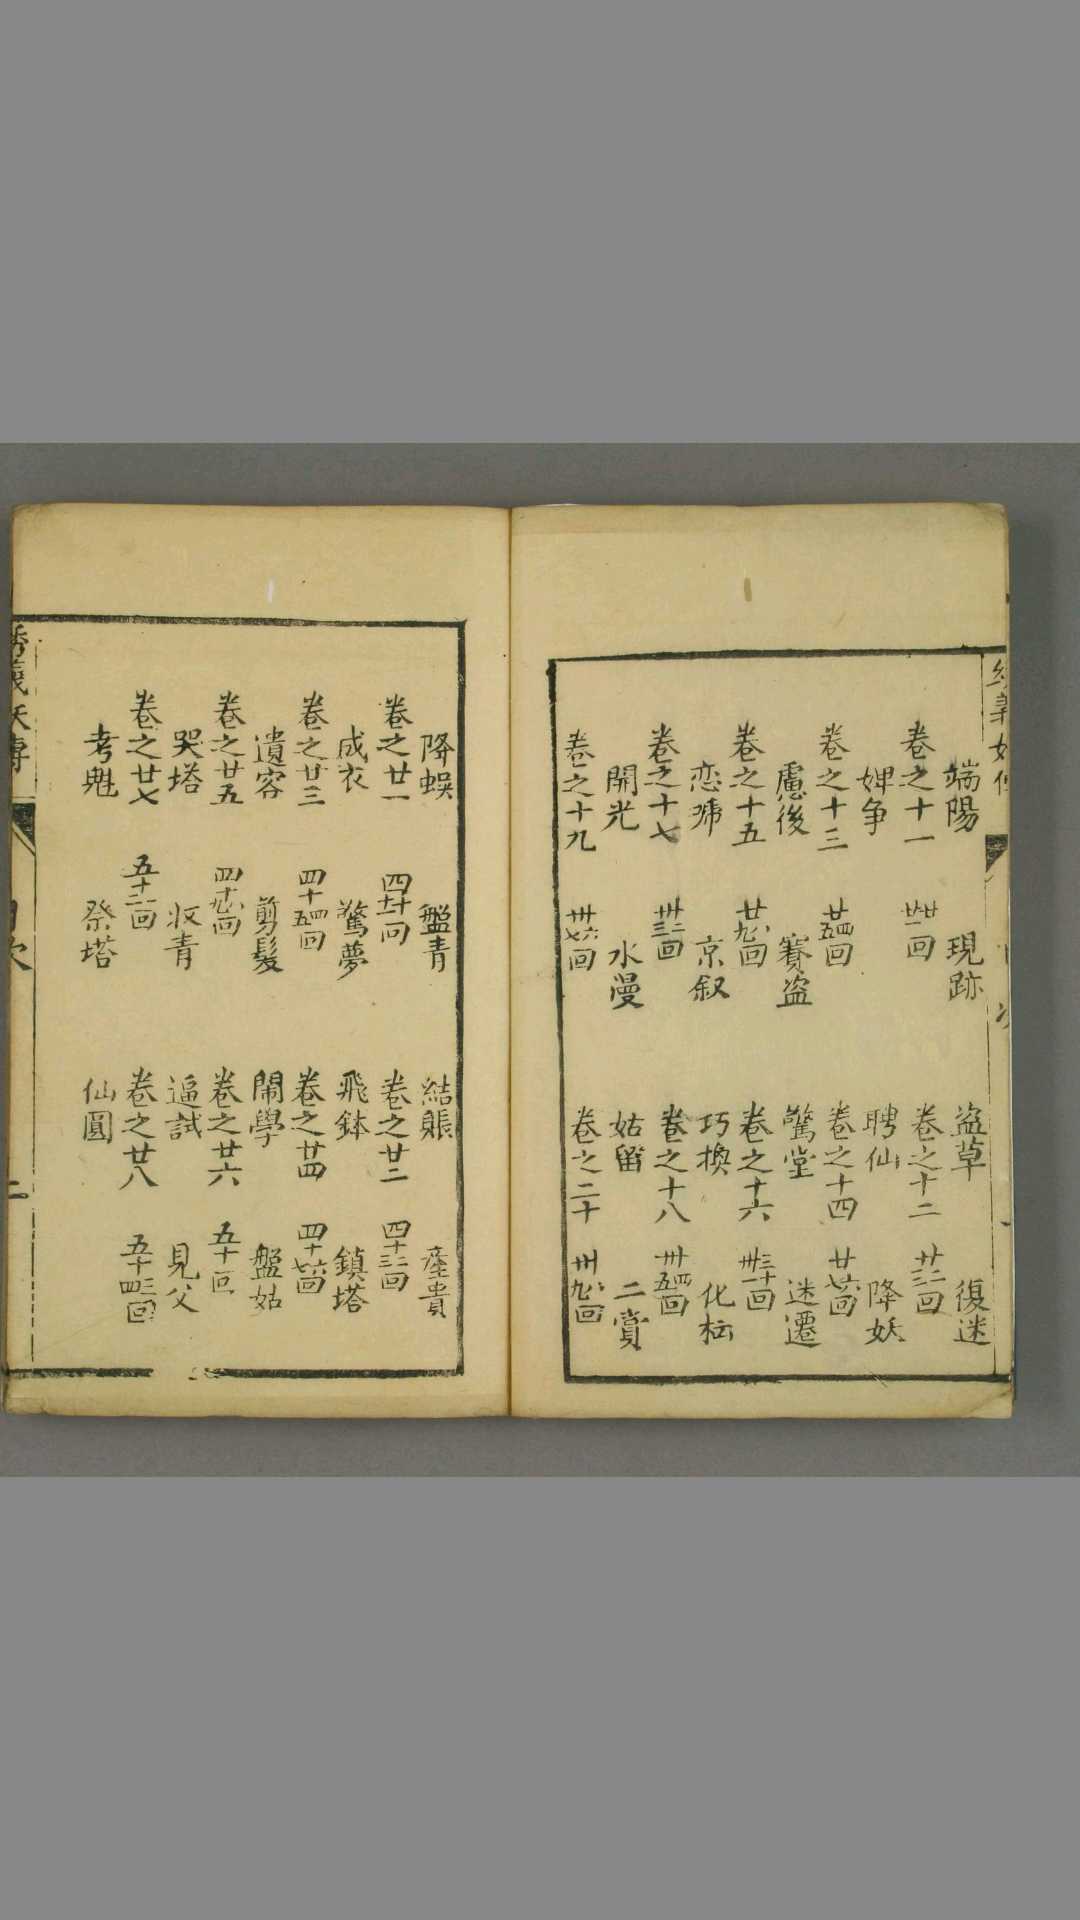 端陽　現跡　盗草　復迷
卷之十一　廿廿一回　卷之十二　廿二三回
婢争　聘仙　降妖
卷之十三　廿四五回　卷之十四　廿六七回
慮後　賽盗　驚堂　迷遷
卷之十五　廿八九回　卷之十六　三十卅一回
恋　京叙　巧換　化枟
卷之十七　卅二三回　卷之十八　卅四五回
開光　水漫　姑留　二賞
卷之十九　卅六七回　卷之二十　卅八九回
降蜈　盤青　結賬　産貴
卷之廿一　四十四十一回　卷之廿二　四十二三回
成衣　驚夢　飛鉢　鎮塔
卷之廿三　四十四五回　卷之廿四　四十六七回
遺容　剪髮　鬧學　盤姑
卷之廿五　四十八九回　卷之廿六　五十回
哭塔　收青　逼試　見父
卷之廿七　五十一二回　卷之廿八　五十三四回
考魁　祭塔　仙圓
妖傳
目次
二